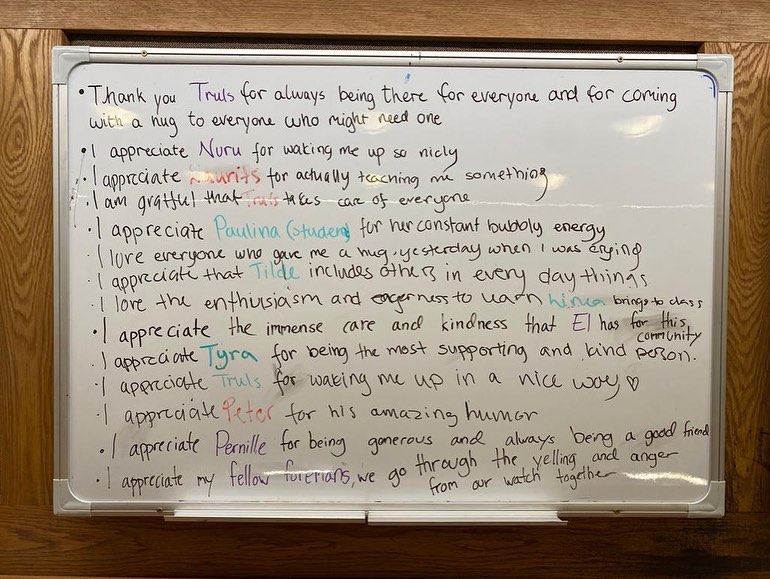 • Thank you Truls for always being there for everyone and for coming
with a hug to everyone who might need one
• I appreciate Nuru for waking me up so nicly
• I apprciate Laurits for actually teaching me something
• I am gratful that Truls takes care of everyone
• I appreciate Paulina (student) for her constant bubbly energy
• I love everyone who gave me a hug yesterday when I was crying
• I appreciate that Tilde includes others in every day things
• I love the enthusiasm and eagerness to learn Linea brings to class
• I appreciate the immense care and kindness that El has for this
community
• I appreciate Tyra for being the most supporting and kind person.
• I appreciate Truls for waking me up in a nice way ♡
• I appreciate Peter for his amazing humor
• I appreciate Pernille for being generous and always being a good friend
• I appreciate my fellow, we go through the yelling and anger
from our watch together